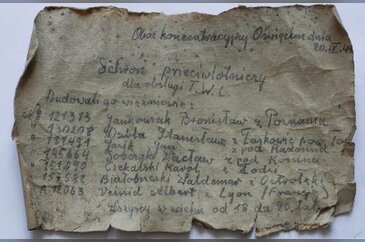 Obóz koncentracyjny Oświęcim dnia
20.IX.44
Schron przeciwlotniczy
dla obsługi T.W.L.
Budowali go więźniowie:
Nr 121313 Jankowiak Bronisław z Poznania
" 130208 Dubla Stanisław z Łaskowic pow.
" 131491 Jasik Jan z pod Radomia
" 145664 Sobczak Wacław z pod Konina
" 151090 Czekalski Karol z Łodzi
" 157582 Białobrzeski Waldemar z Ostrołęki
" A12063 Veissid Albert z Lyon (Francja)
Wszyscy w wieku od 18 do 20 lat